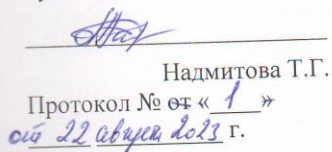 Надмитова Т.Г.
Протокол № от « 1 »
от 22 августа 2023 г.